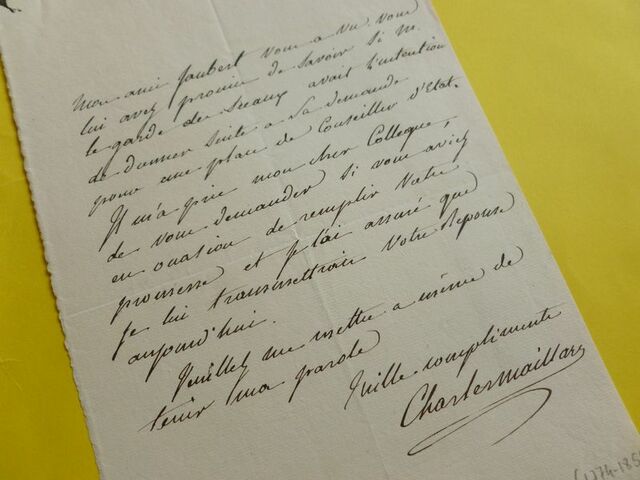 Mon ami Jaubert vous a vu vous
lui avez promis de savoir si M.
le garde des Sceaux avait l'intention
de donner suite a sa demande
pour une place de Conseiller d'Etat.
Il m'a prié mon cher Collegue,
de vous demander si vous aviez
eu occasion de remplir votre
promesse et je l'ai assuré que
je lui transmettrois votre Reponse
aujourd'hui.
Veuillez me mettre a même de
tenir ma parole
Mille compliments
Charles Maillard
(1774-185